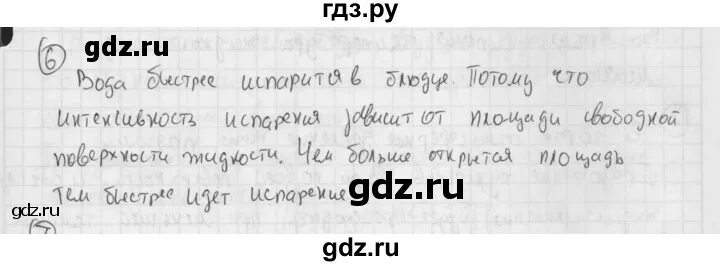 гдз.ру
6
gdz.ru
Вода быстрее испарится в блюдце. Потому что
интенсивность испарения зависит от площади свободной
поверхности жидкости. Чем больше открытся площадь
тем быстрее идет испарение
gdz.ru
gdz.ru
gdz.ru
7
gdz.ru